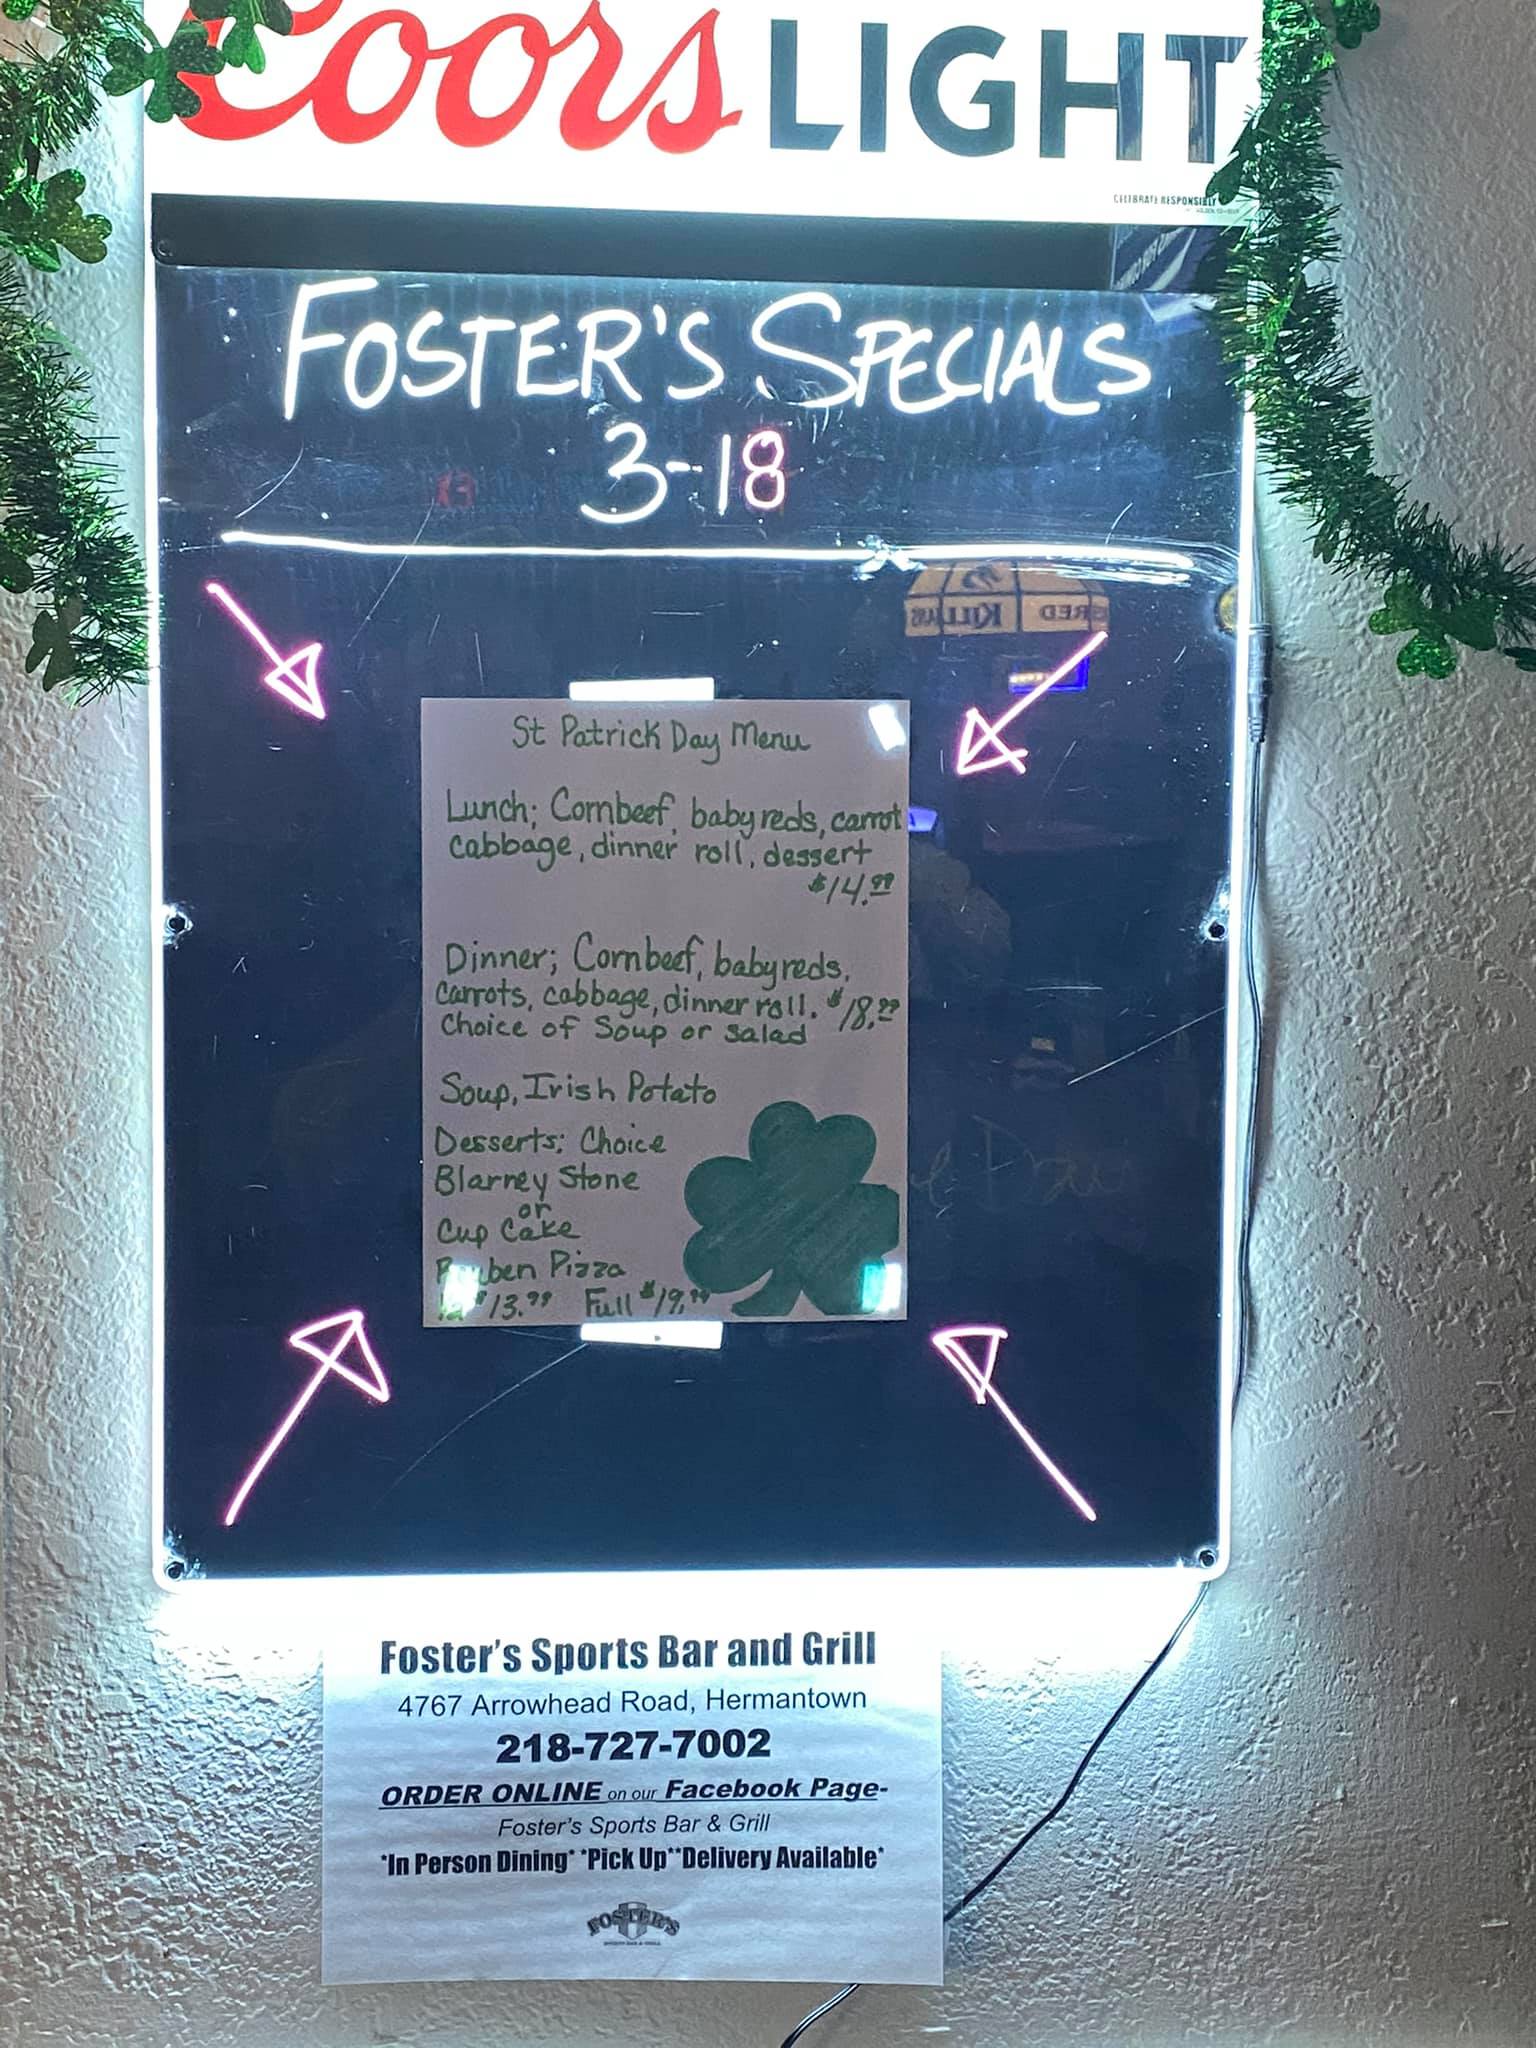 Coors LIGHT
CELEBRATE RESPONSIBLY
FOSTER'S SPECIALS
3-18
RED
KILLIANS
St Patrick Day Menu
Lunch; Cornbeef, baby reds, carrot
cabbage, dinner roll, dessert
$14.99
Dinner; Cornbeef, baby reds,
carrots, cabbage, dinner roll. $18.99
Choice of Soup or salad
Soup, Irish Potato
Desserts: Choice
Blarney Stone
or
Cup Cake
Reuben Pizza
12" $13.99 Full $19.99
Foster's Sports Bar and Grill
4767 Arrowhead Road, Hermantown
218-727-7002
ORDER ONLINE on our Facebook Page-
Foster's Sports Bar & Grill
*In Person Dining* *Pick Up**Delivery Available*
FOSTER'S
SPORTS BAR & GRILL